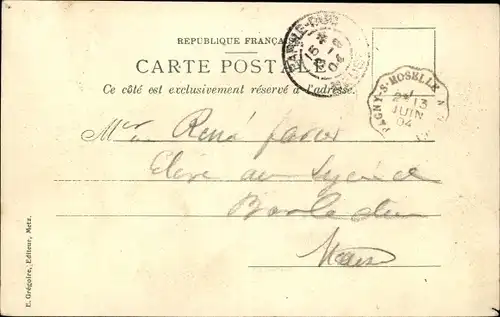 RÉPUBLIQUE FRANÇA
CARTE POSTALE
Ce côté est exclusivement réservé à l'adresse.
PAGNY-S-MOSELLE N
2E 13
JUIN
04
Mr René
Elève au Lycée de
Bar le duc
Meuse
E. Grégoire, Editeur, Metz.